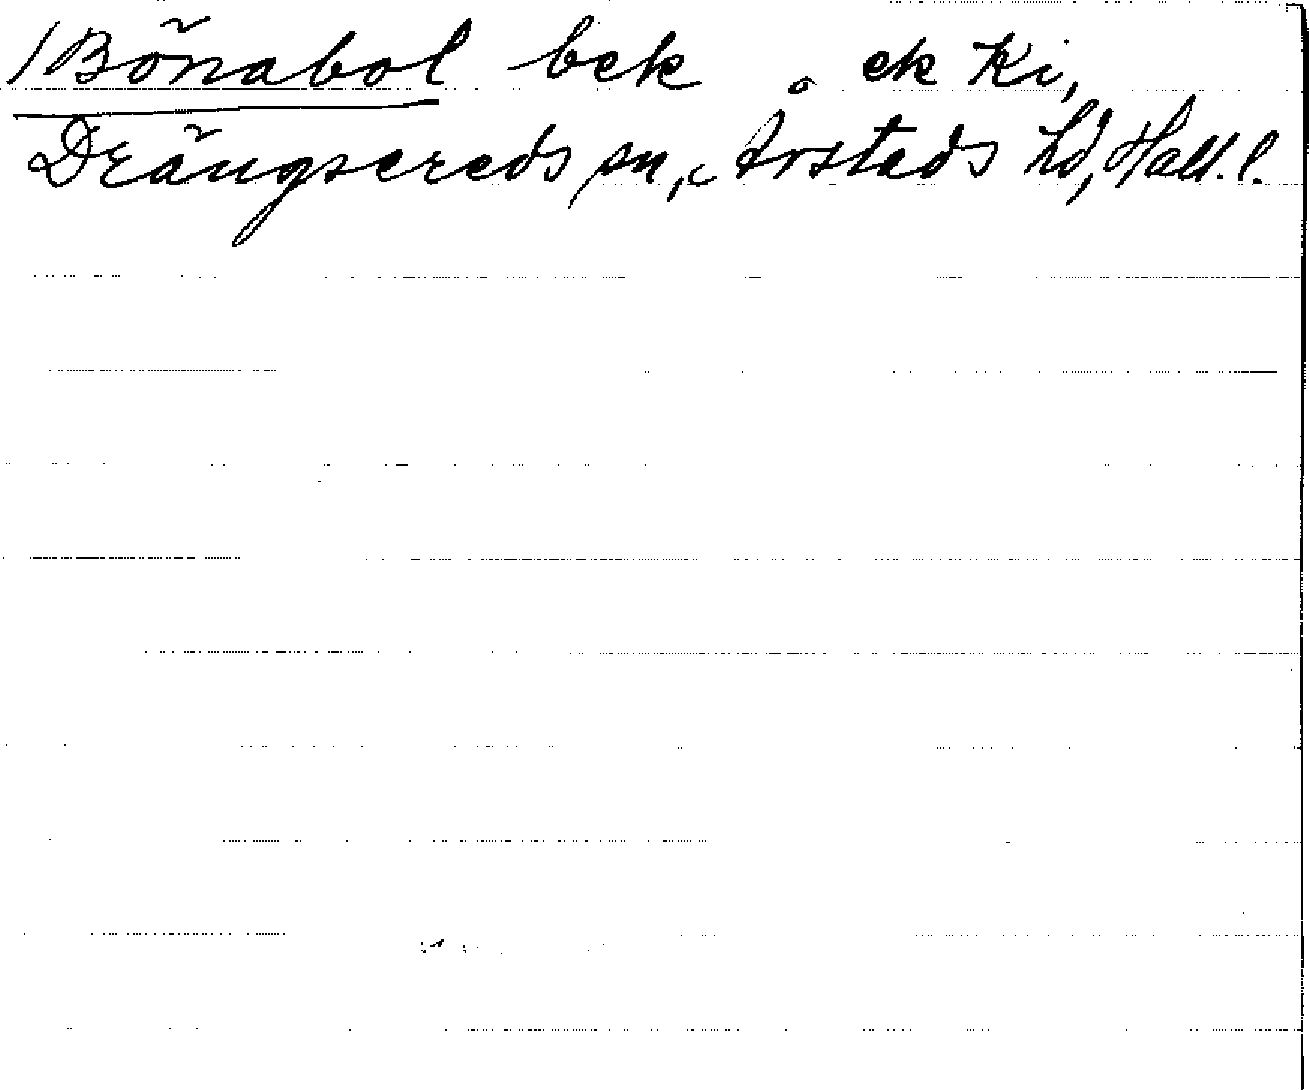 /Bönabol bek ek Ki,
Drängsereds sn, Årstads hd, Hall. l.